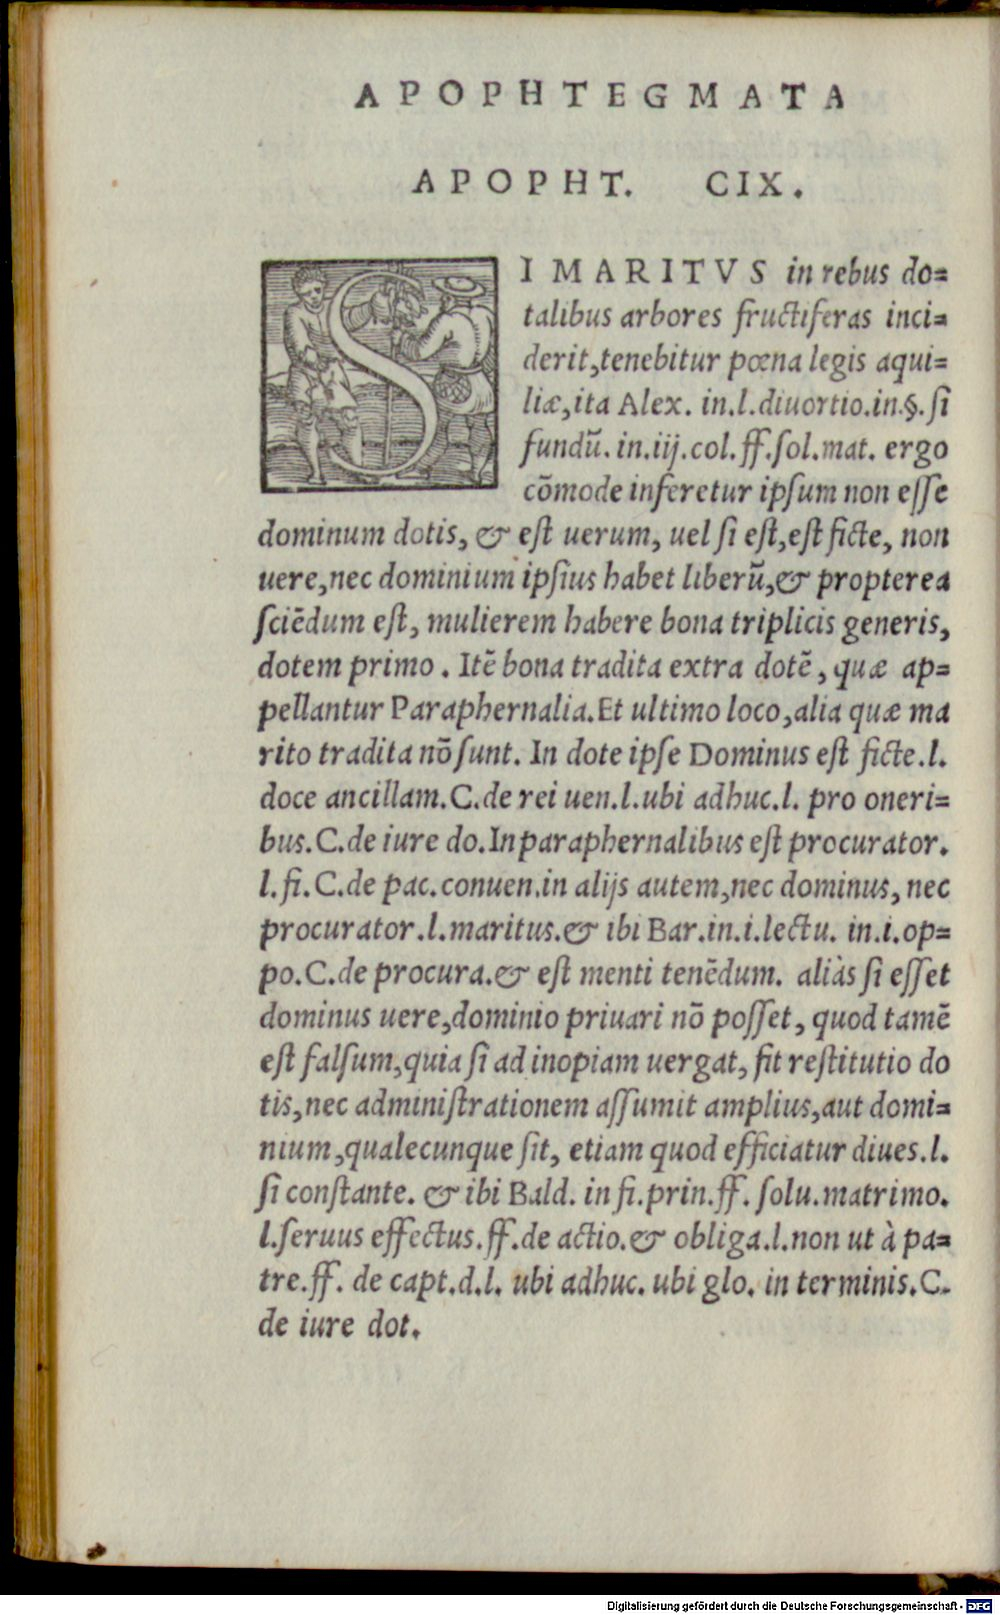 APOPHTEGMATA
APOPHT. CIX.
SI MARITVS in rebus do=
talibus arbores fructiferas inci=
derit,tenebitur pœna legis aqui=
liæ,ita Alex. in.l.diuortio.in.§.ſi
fundū.in.iij.col.ff.ſol.mat. ergo
cōmode inferetur ipſum non eſſe
dominum dotis, & eſt uerum, uel ſi eſt,eſt ficte, non
uere,nec dominium ipſius habet liberū,& propterea
ſciēdum eſt, mulierem habere bona triplicis generis,
dotem primo . Itē bona tradita extra dotē , quæ ap=
pellantur Paraphernalia.Et ultimo loco,alia quæ ma
rito tradita nō ſunt. In dote ipſe Dominus eſt ficte.l.
doce ancillam.C.de rei uen.l.ubi adhuc.l. pro oneri=
bus.C.de iure do.In paraphernalibus eſt procurator.
l.fi.C.de pac.conuen.in alijs autem,nec dominus, nec
procurator.l.maritus.& ibi Bar.in.i.lectu. in.i.op=
po.C.de procura.& eſt menti tenēdum. aliàs ſi eſſet
dominus uere,dominio priuari nō poſſet, quod tamē
eſt falſum,quia ſi ad inopiam uergat, fit reſtitutio do
tis,nec adminiſtrationem aſſumit amplius,aut domi=
nium,qualecunque ſit, etiam quod efficiatur diues.l.
ſi conſtante. & ibi Bald. in fi.prin.ff. ſolu.matrimo.
l.ſeruus effectus.ff.de actio.& obliga.l.non ut à pa=
tre.ff. de capt.d.l. ubi adhuc. ubi glo. in terminis.C.
de iure dot.
Digitalisierung gefördert durch die Deutsche Forschungsgemeinschaft - DFG